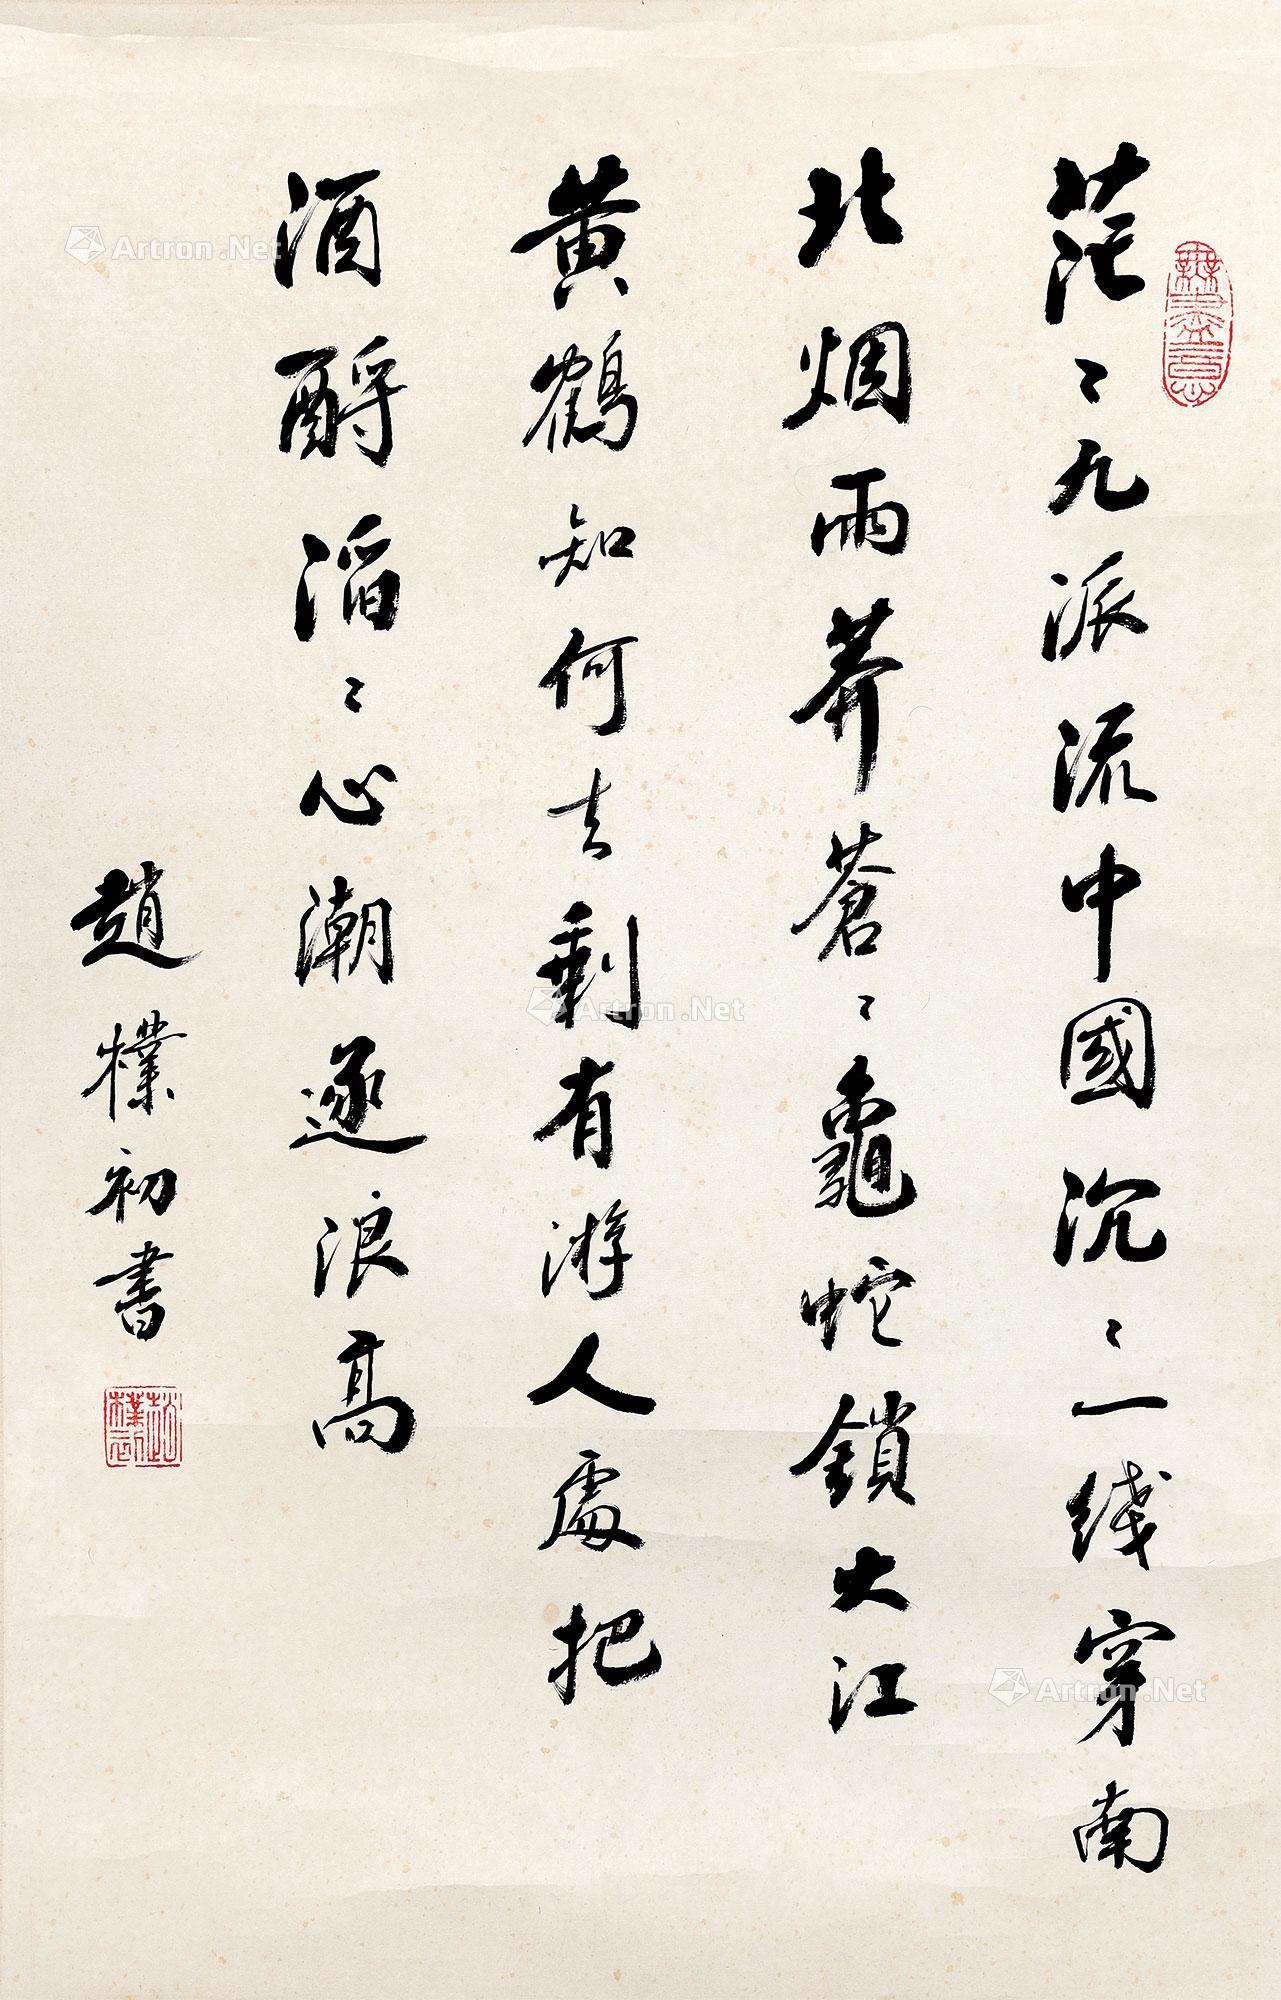 茫〻九派流中國沉〻一线穿南
北烟雨莽蒼〻龜蛇鎖大江
黄鶴知何去剩有游人處把
酒酹滔〻心潮逐浪高
趙樸初書
趙樸初
無盡意
Artron.Net
Artron.Net
Artron.Net